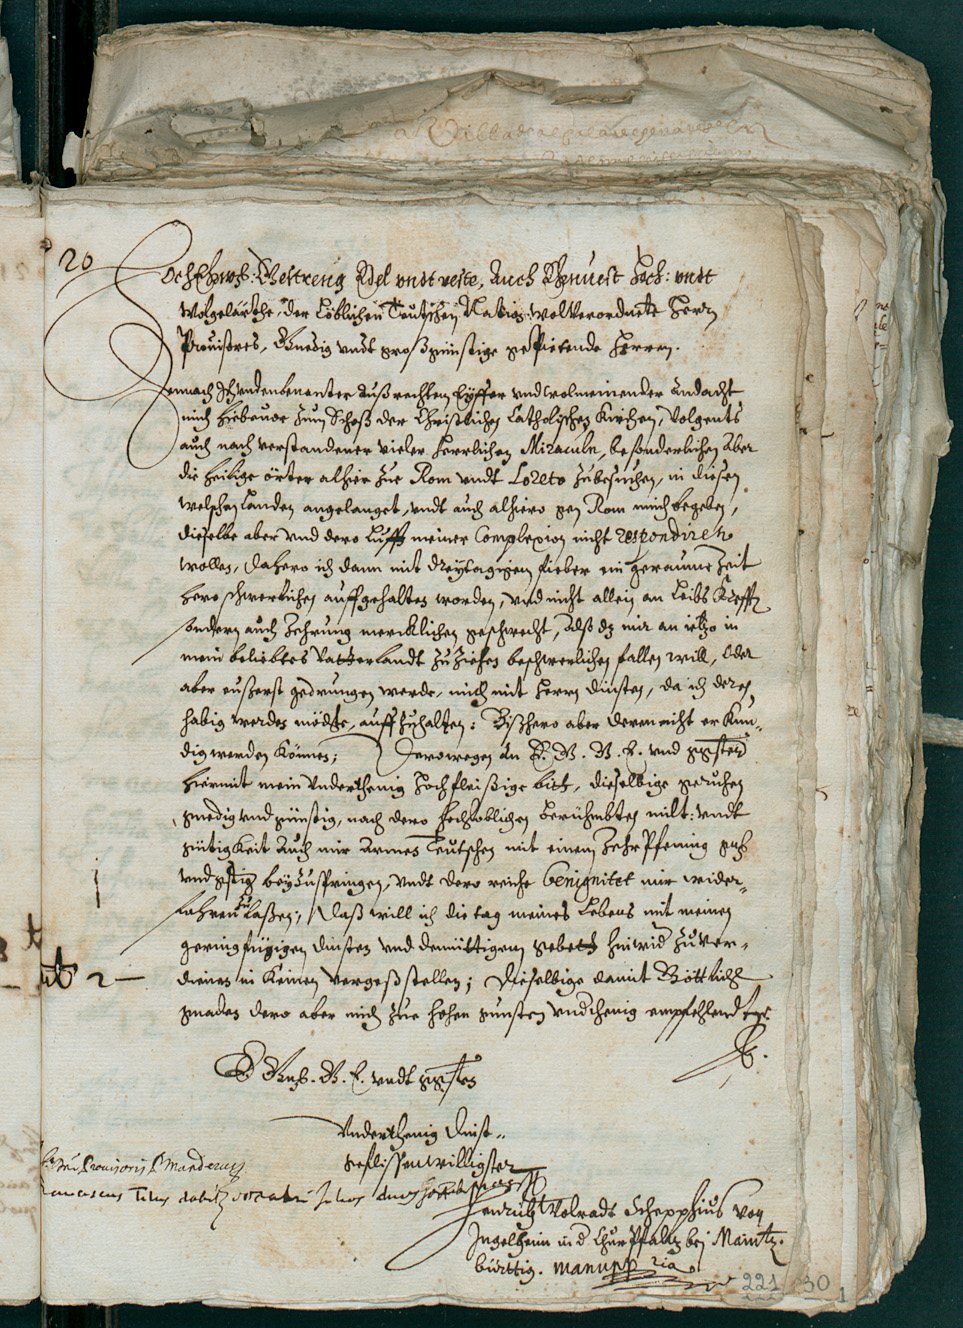 20
HochEhrwß: Gestreng Edel undt veste, Auch Ehrnvest Hoch: undt
Wolgelärthe, der Löblichen Teutschen Nation wolverordnete Herrn
Provisores, Gnedig undt großgünstige gepietende Herren.
Demnach Ich undenbenanter auß rechtem Eyffer und wolmeinender Andacht
mich hiebevor zum Schoß der Christlichen Catholischen Kirchen, Volgents
auch nach verstandener vieler herrlichen Miraculn, besonderlichen aber
die heilige örter alhier zue Rom undt Loreto zubesuchen, in diesen
welschen Landen angelanget, undt auch alhiero gen Rom mich begeben,
dieselbe aber und dero Lufft meiner Complexion nicht respondiren
wollen, dahero ich dann mit dreytagigem fieber ein geraume Zeit
hero schwerlichen auffgehalten worden, und nicht allein an Leibs Kräfften
sondern auch Zehrung mercklichen geschwecht, Alß dz mir an ietzo in
mein beliebtes Vatterlandt zuziehen beschwerlichen fallen will, Oder
aber eußerst gedrungen werde, mich mit Herrn dinsten, da ich deren
habig werden möchte, auffzuhalten: Bißhero aber deren nicht erkun-
dig werden können; Derowegen an E. G. G. E. und
hiermit mein Underthenig Hochfleißige bitt, dieselbige geruhen
gnedig und günstig, nach dero hochloblichen berühmbten milt: undt
gütigkeit Auch mir armen Teutschen mit einem ZehrPfennig
beyzuspringen, Undt dero reiche Benignitet mir wider-
fahren zu laßen; Daß will ich die tag meines Lebens mit meinen
geringfügigen dinsten und demüttigem gebett hinwid zuver-
dienen in keinen vergeß stellen; Dieselbige damit Göttlich
gnaden dero aber mich zue hohen gunsten empfehlendt
E. G. E. undt
Underthenig dinst-
geflissen willigster
Henrich Volradt Schepphius von
Ingelheim in d ChurPfaltz bei Maintz
bürttig. manu ppria
ut 2 —
221 30
1